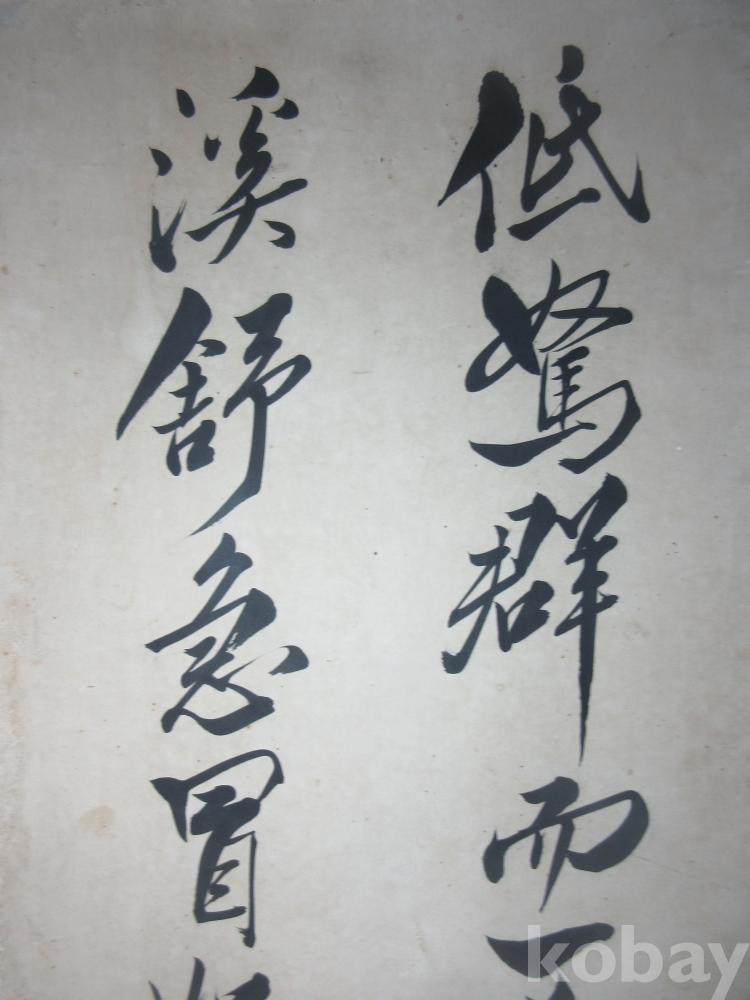 低駑群而
溪舒急冒
kobay